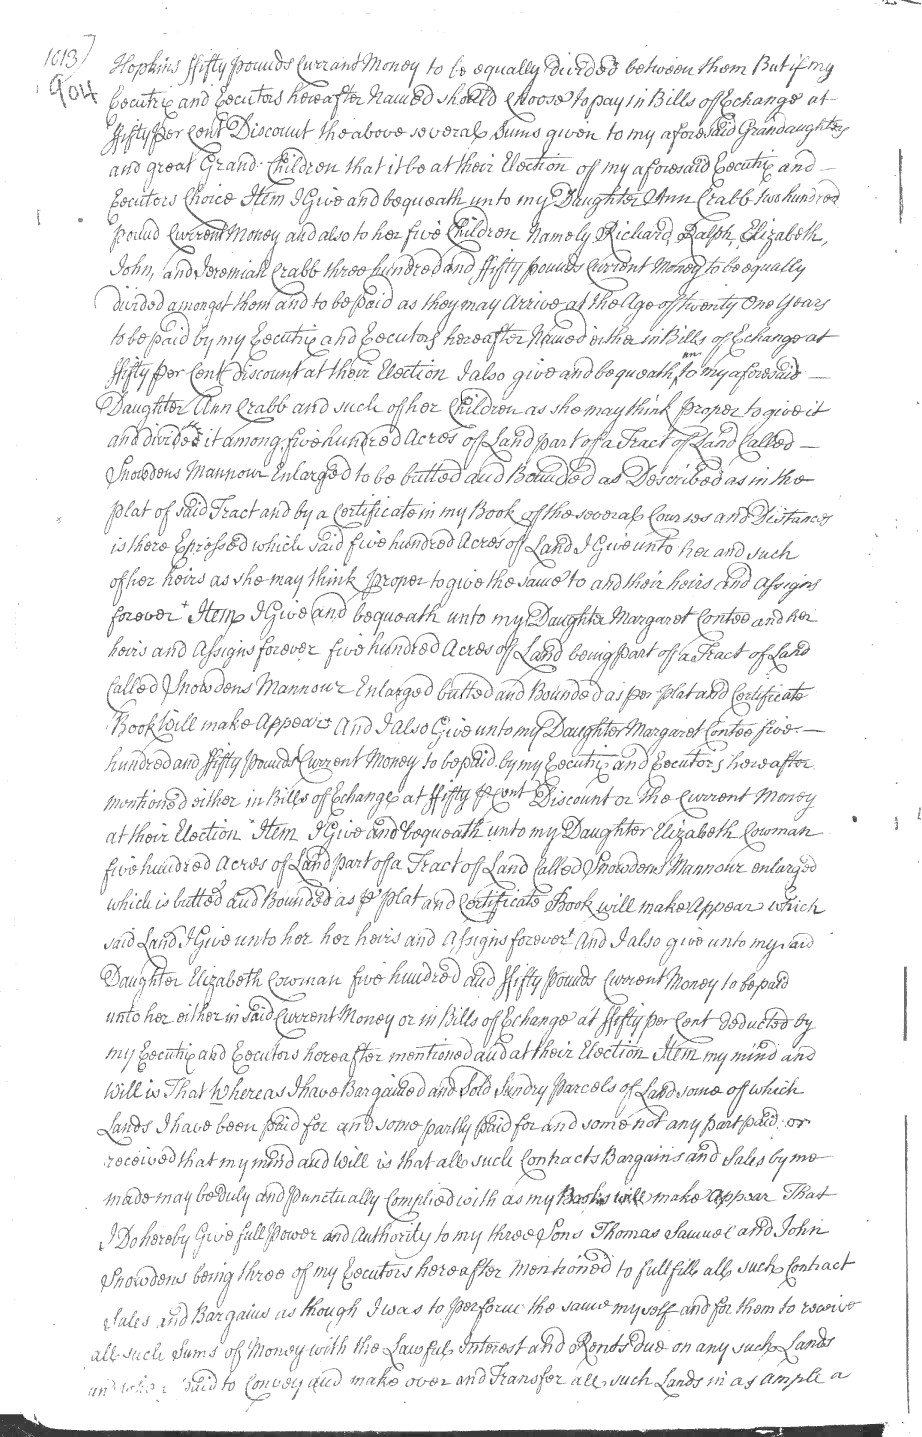 1013
904
Hopkins ffifty pounds Currant Money to be equally divided between them But if my
Executrix and Executors hereafter Named should Choose to pay in Bills of Exchange at
ffifty per Cent Discount the above several Sums given to my aforesaid Grandaughters
and great Grand Children that it be at their Election of my aforesaid Executrix and
Executors Choice Item I Give and bequeath unto my Daughter Ann Crabb two hundred
pound Current Money and also to her five Children Namely Richard, Ralph, Elizabeth,
John, and Jeremiah Crabb three hundred and ffifty pounds Current Money to be equally
divided amongst them and to be paid as they may Arrive at the Age of twenty One Years
to be paid by my Executrix and Executors hereafter Named either in Bills of Exchange at
ffifty per Cent discount at their Election I also give and bequeath unto my aforesaid
Daughter Ann Crabb and such of her Children as she may think proper to give it
and divide it among five hundred Acres of Land part of a Tract of Land Called
Snowdens Mannour Enlarged to be butted and Bounded as Described as in the
plat of said Tract and by a Certificate in my Book of the several Courses and Distances
is there Expressed which said five hundred Acres of Land I Give unto her and such
of her heirs as she may think proper to give the same to and their heirs and Assigns
forever Item I Give and bequeath unto my Daughter Margaret Contee and her
heirs and Assigns forever five hundred Acres of Land being part of a Tract of Land
Called Snowdens Mannour Enlarged butted and Bounded as per plat and Certificate
Book Will make Appear And I also Give unto my Daughter Margaret Contee five
hundred and ffifty pounds Current Money to be paid by my Executrix and Executors hereafter
mentioned either in Bills of Exchange at ffifty p Cent Discount or the Current Money
at their Election Item I Give and bequeath unto my Daughter Elizabeth Cowman
five hundred Acres of Land part of a Tract of Land Called Snowdens Mannour enlarged
which is butted and Bounded as p plat and Certificate Book will make Appear which
said Land I Give unto her her heirs and Assigns forever And I also give unto my said
Daughter Elizabeth Cowman five hundred and ffifty pounds Current Money to be paid
unto her either in said Current Money or in Bills of Exchange at ffifty per Cent deducted by
my Executrix and Executors hereafter mentioned and at their Election Item my mind and
will is That Whereas I have Bargained and Sold Sundry parcels of Land some of which
Lands I have been paid for and some partly paid for and some not any part paid or
received that my mind and will is that all such Contracts Bargains and Sales by me
made may be Duly and Punctually Complied with as my Books will make Appear That
I Do hereby Give full power and Authority to my three Sons Thomas Samuel and John
Snowdens being three of my Executors hereafter Mentioned to fullfill all such Contract
Sales and Bargains as though I was to perform the same my self and for them to receive
all such Sums of Money with the Lawful Interest and Rents due on any such Lands
and paid to Convey and make over and Transfer all such Lands in as ample a